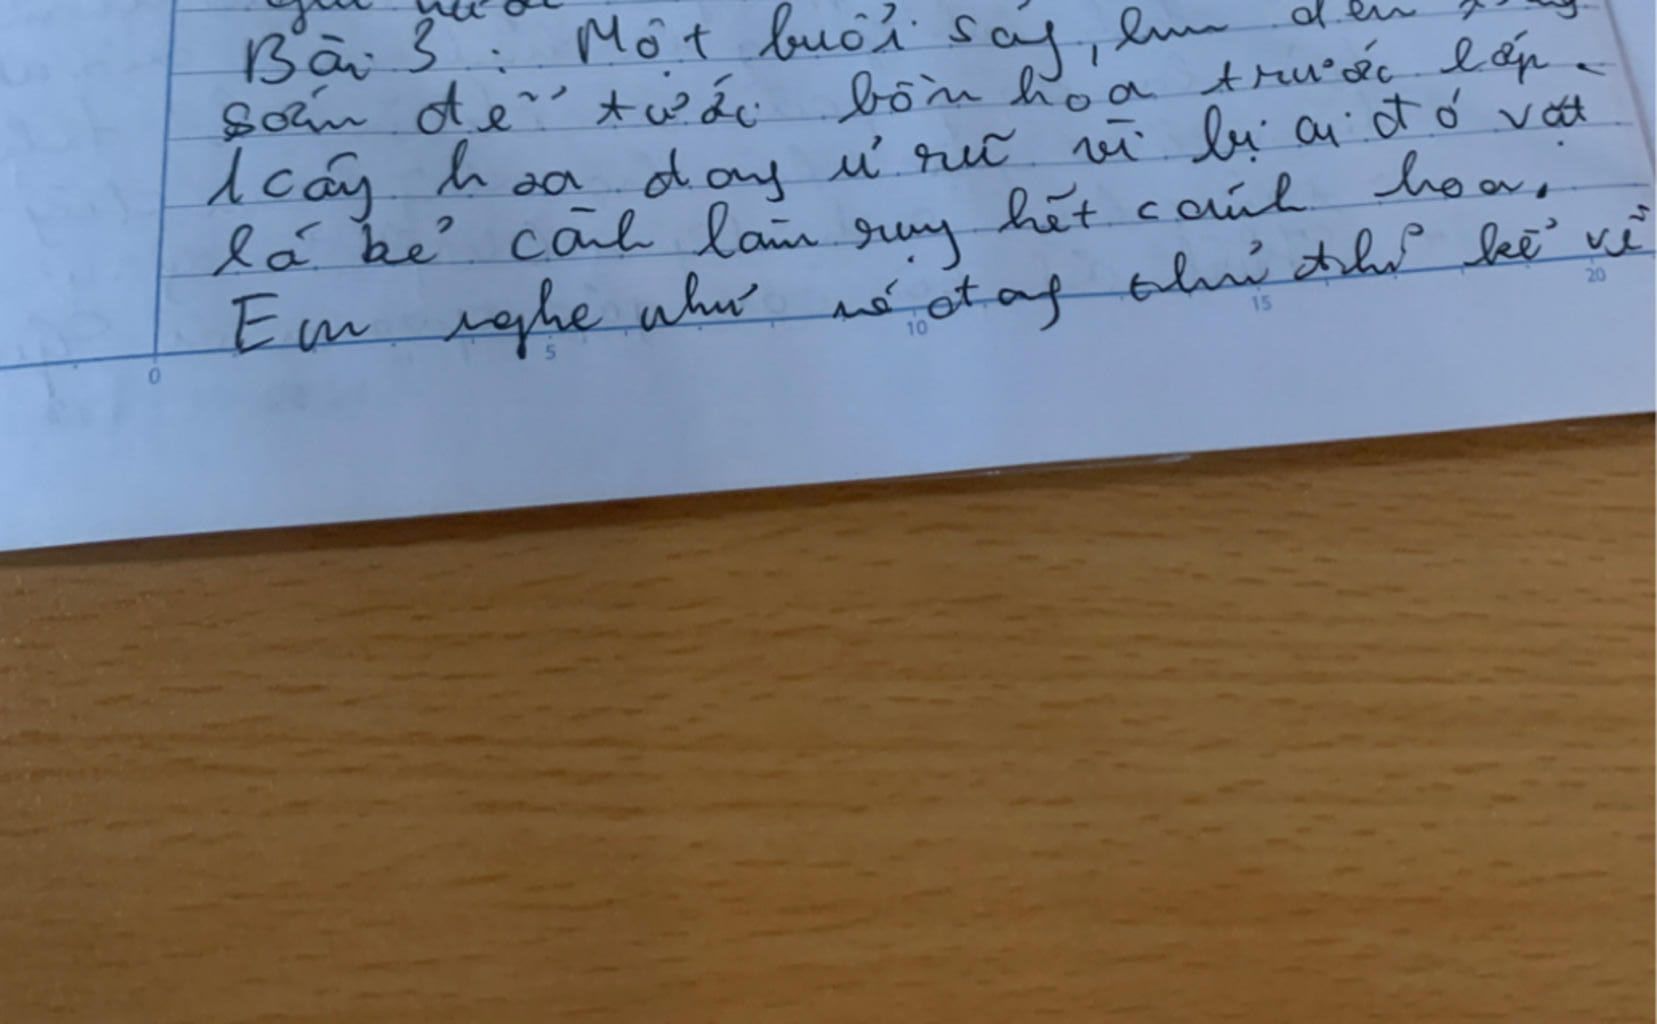 Bài 3 : Một buổi sáng, em đến
sớm để tưới bồn hoa trước lớp.
1 cây hoa đang ủ rũ vì bị ai đó vặt
lá bẻ cành làm rụng hết cánh hoa.
Em nghe như nó đang thủ thỉ kể về
0 5 10 15 20